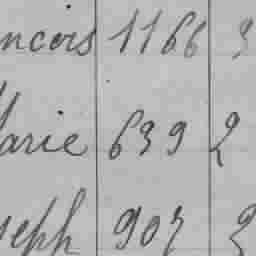 ncois 1166 3
Marie 639 2
seph 907 2